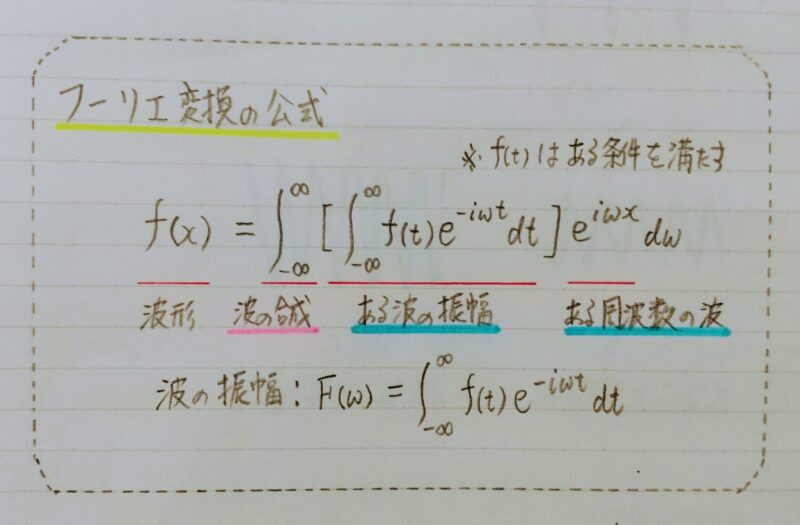 フーリエ変換の公式
※ f(t)はある条件を満たす
f(x) = ∫_{-∞}^{∞} [∫_{-∞}^{∞} f(t)e^{-iωt}dt] e^{iωx}dω
波形 波の合成 ある波の振幅 ある周波数の波
波の振幅: F(ω) = ∫_{-∞}^{∞} f(t)e^{-iωt}dt